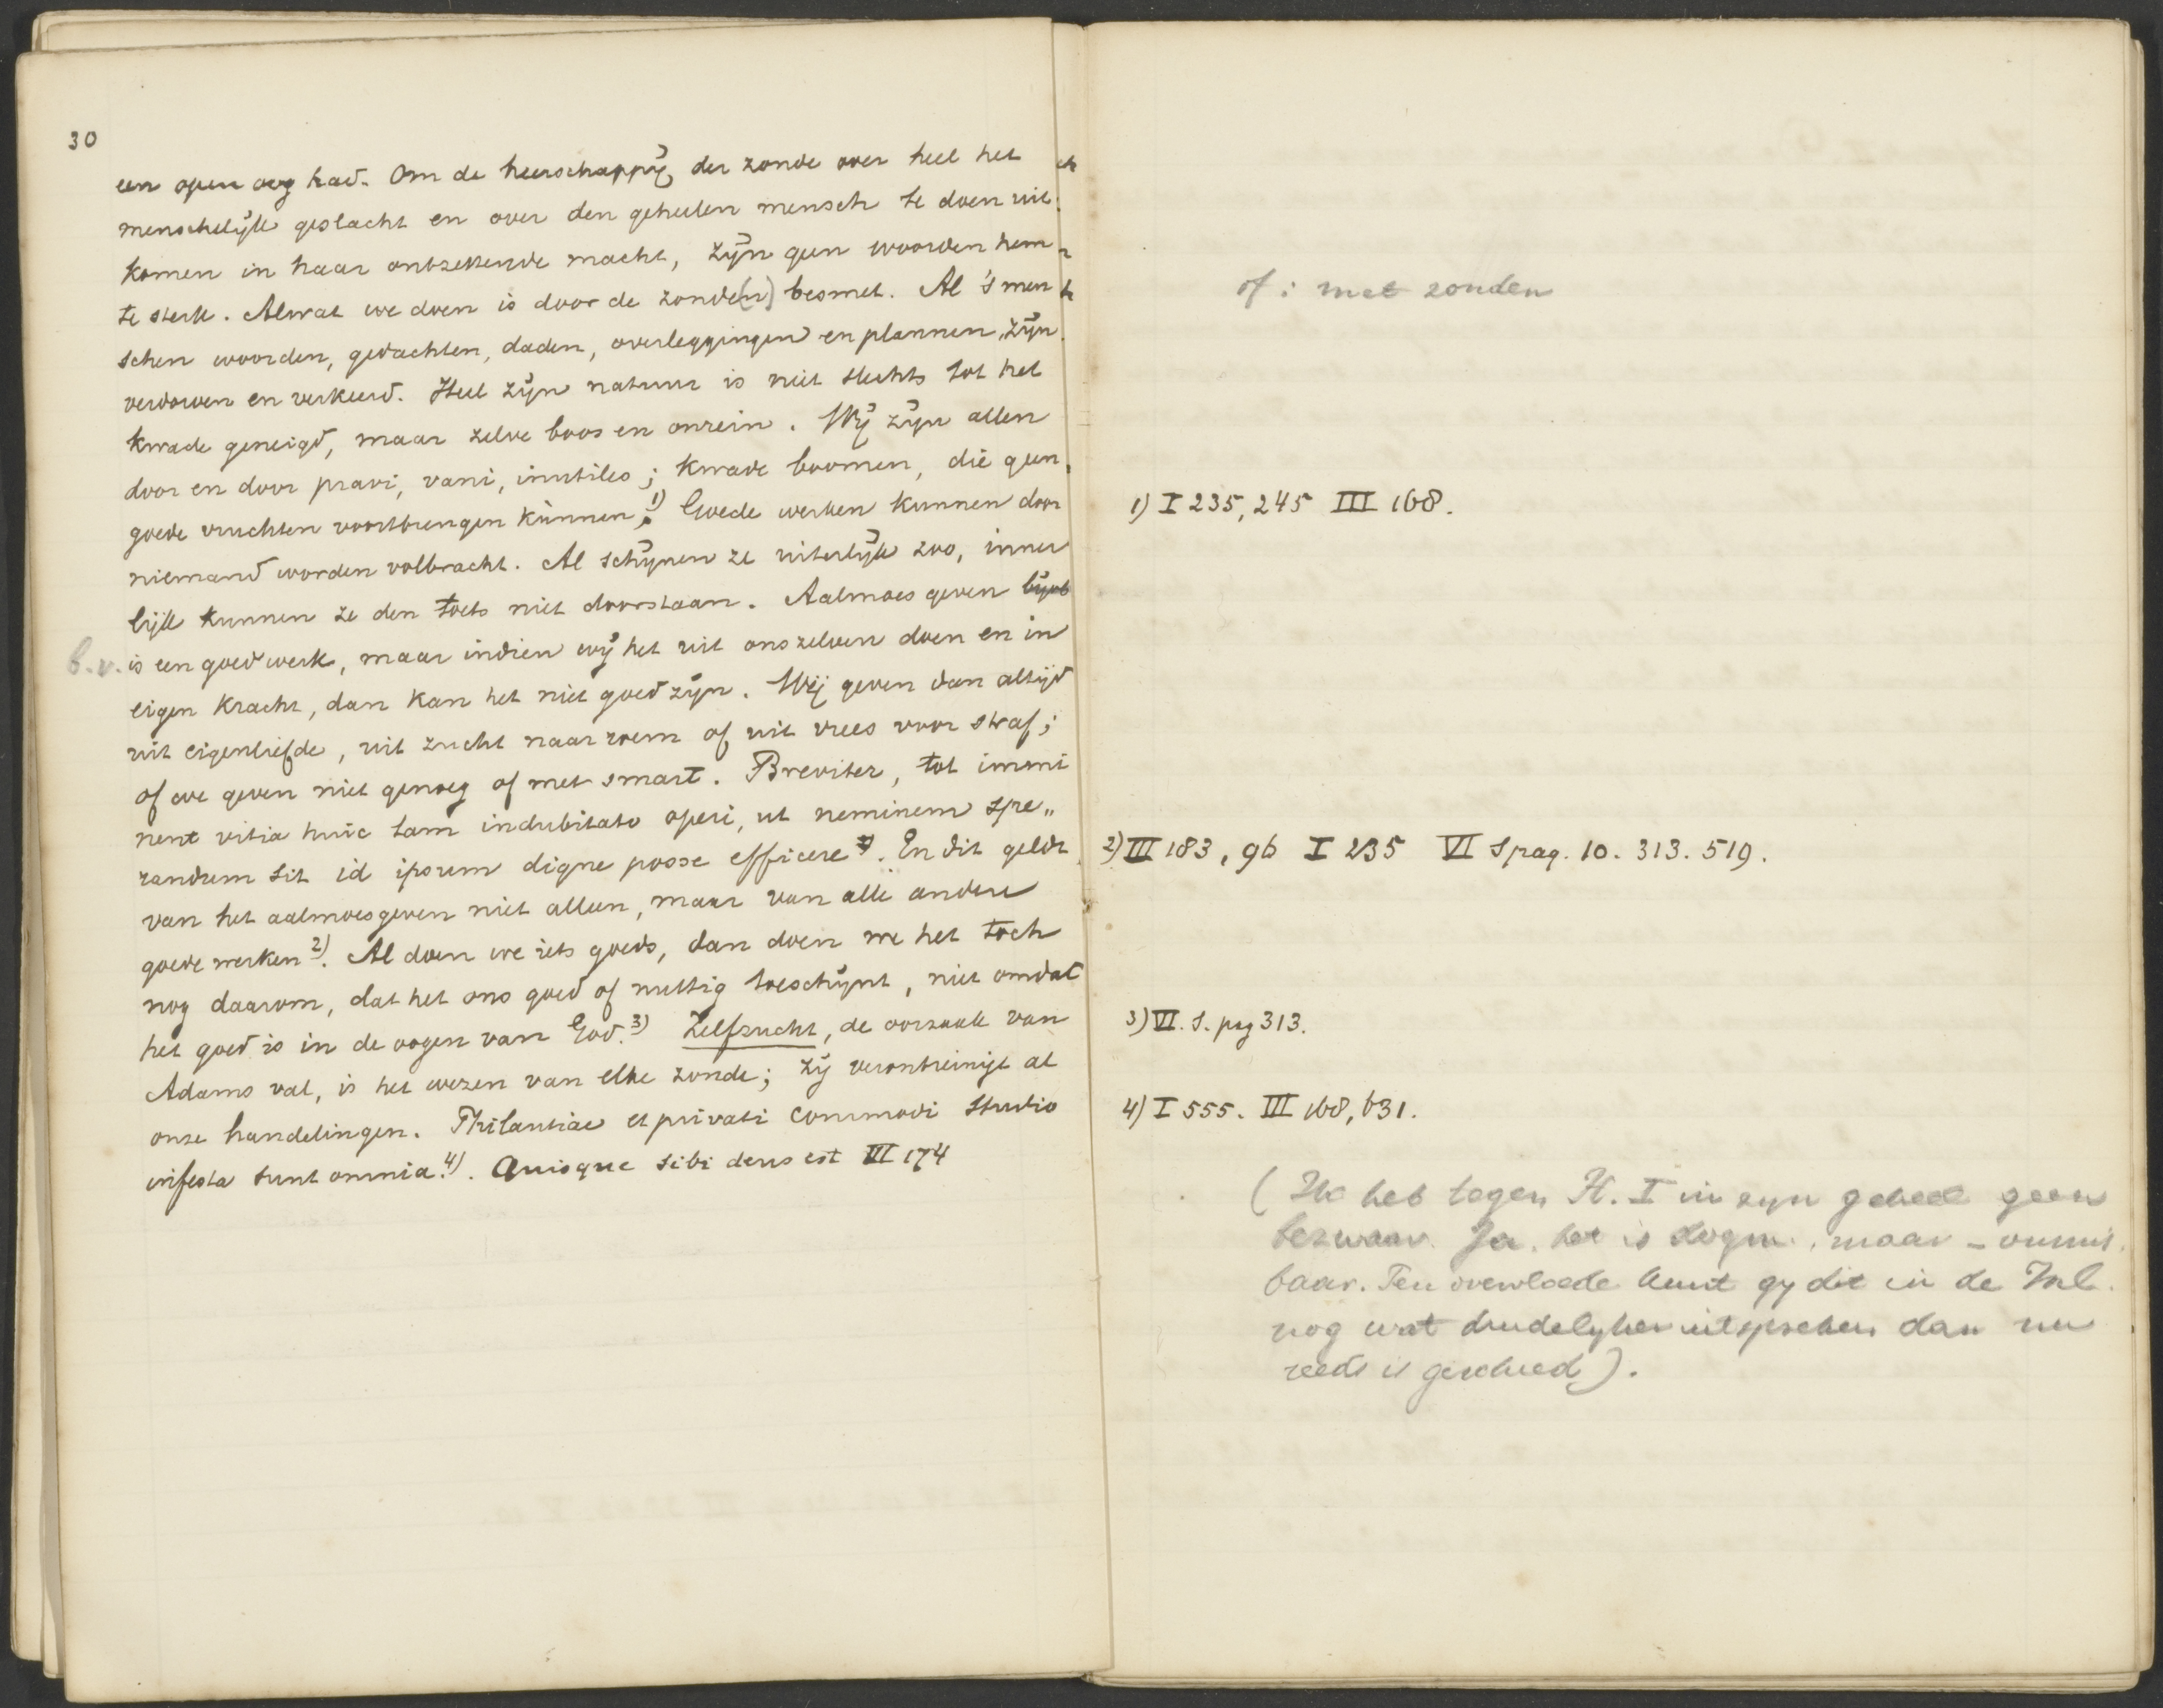 30
een open oog had. Om de heerschappij der zonde over heel het
menschelijk geslacht en over den geheelen mensch te doen uit
komen in haar ontzettende macht, zijn geen woorden hem
te sterk. Alwat we doen is door de zonde(n) besmet. Al 's men
schen woorden, gedachten, daden, overleggingen en plannen, zijn
verdorven en verkeerd. Heel zijn natuur is niet slechts tot het
kwade geneigd, maar zelve boos en onrein. Wij zijn allen
door en door pravi, vani, inutiles; kwade boomen, die geen
goede vruchten voortbrengen kunnen 1). Goede werken kunnen door
niemand worden volbracht. Al schijnen ze uiterlijk zoo, inner
lijk kunnen ze den toets niet doorstaan. Aalmoes geven
b.v. is een goed werk, maar indien wij het uit onszelven doen en in
eigen kracht, dan kan het niet goed zijn. Wij geven dan altijd
uit eigenliefde, uit zucht naar roem of uit vrees voor straf;
of we geven niet genoeg of met smart. Breviter, tot immi
nent vitia huic tam indubitato operi, ut neminem spe„
randum sit id ipsum digne posse efficere. En dit geldt
van het aalmoesgeven niet alleen, maar van alle andere
goede werken 2). Al doen we iets goeds, dan doen we het toch
nog daarom, dat het ons goed of nuttig toeschijnt, niet omdat
het goed is in de oogen van God. 3) Zelfzucht, de oorzaak van
Adams val, is het wezen van elke zonde; zij verontreinigt al
onze handelingen. Philautiae et privati commodi studio
infecta sunt omnia 4). Quisque sibi deus est VI 174
of: met zonden
1) I 235, 245 III 168.
2) III 183, 96 I 235 VI S pag. 10. 313. 519.
3) VI. S. pag 313.
4) I 555. III 168, 631.
(Ik heb tegen H. I in zijn geheel geen
bezwaar. Ja, het is dogm., maar – onmis
baar. Ten overvloede kunt gij dit in de Inl.
nog wat duidelijker uitspreken dan nu
reeds is geschied).